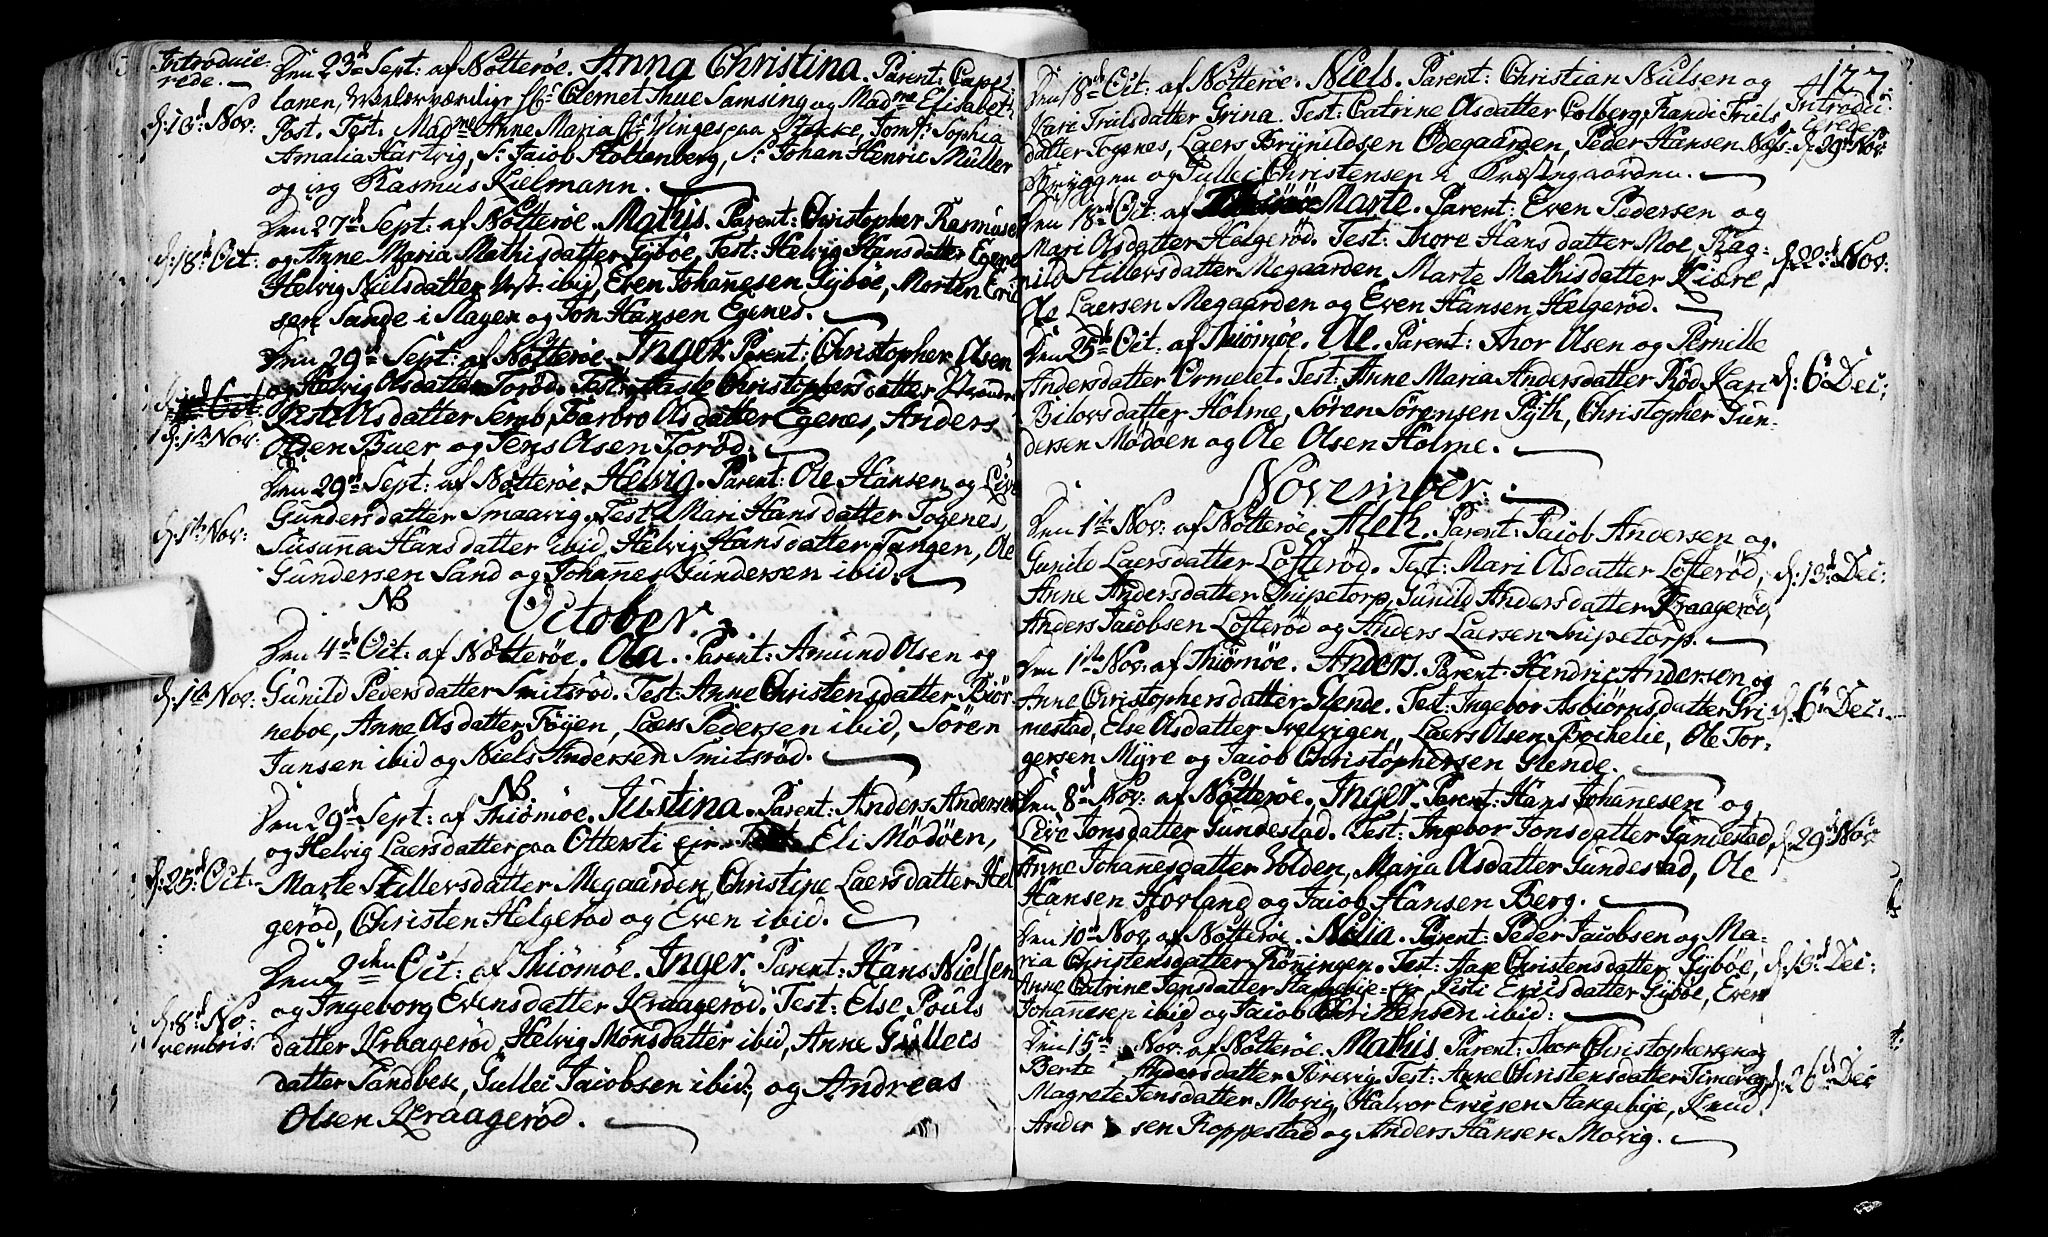 Introduce-
rede.
Den 23d Sept: af Nötteröe. Anna Christina. Parent: Capel-
lanen, Velærværdige Hr: Clemet Thue Samsing og Madme Elisabeth
d: 13d Nov:
Post. Test. Madme Anne Maria Winges paa Stokke, Jomf: Sophia
Amalia Hartvig, Sr: Jacob Stoltenberg, Sr: Johan Henric Müller
og jeg Rasmus Kielmann.
Den 27d Sept: af Nötteröe. Mathis. Parent: Christopher Rasmusen
d: 18d Oct:
og Anne Maria Mathisdatter Gyböe, Test: Helvig Hansdatter Egene
Helvig Nielsdatter ibid, Even Johannesen Gyböe, Morten Eric
sen Sande i Slagen og Jon Hansen Egenes.
Den 29d Sept: af Nötteröe. Inger. Parent: Christopher Olsen
og Helvig Olsdatter Toröd. Test: Christophersdatter
Oct:
Kisti Olsdatter Semb, Barbro Olsdatter Egenes, Anders
d: 1ste Nov:
Olsen Buer og Jens Olsen Toröd.
Den 29d Sept: af Nötteröe. Helvig. Parent: Ole Hansen og Live
Gundersdatter Smaavig. Test: Mari Hansdatter Togenes,
d: 1ste Nov:
Susanna Hansdatter ibid, Helvig Hansdatter Tangen, Ole
Gundersen Sand og Johannes Gundersen ibid.
NB
October
Den 4d Oct: af Nötteröe. Ola. Parent: Amund Olsen og
d: 1ste Nov:
Gunild Pedersdatter Smitsröd. Test: Anne Christensdatter Biör-
neboe, Anne Olsdatter Föyen, Laers Pedersen ibid, Sören
Jansen ibid og Niels Andersen Smitsröd.
NB
Den 29d Sept: af Thiömöe. Justina. Parent: Anders Andersen
og Helvig Laersdatter paa Ottersti ejr. Test: Eli Mödöen,
d: 25d Oct:
Marte Hellersdatter Megaarden, Christine Laersdatter Hel
geröd, Christen Helgeröd og Even ibid.
Den 2den Oct: af Thiömöe. Inger. Parent: Hans Nielsen
og Ingeborg Evensdatter Kraageröd. Test: Else Pouls
d: 8d No-
vembris:
datter Kraageröd, Helvig Monsdatter ibid, Anne Gullecs
datter Sandbek, Gullec Jacobsen ibid, og Andreas
Olsen Kraageröd.
127.
Introdu-
cerede
Den 18d Oct: af Nötteröe. Niels. Parent: Christian Nielsen og
Kari Trulsdatter Grina. Test: Catrine Olsdatter Colberg, Randi Truls
datter Togenes, Laers Brynildsen Ödegaarden, Peder Hansen
d: 29d Nov:
Bryggen og Gullec Christensen i Prestegaarden.
Den 18d Oct: af Marte. Parent: Even Pedersen og
Mari Olsdatter Helgeröd. Test: Thore Hansdatter Moe, Rag-
d: 22d Nov:
nild Hellersdatter Megaarden, Marte Mathisdatter Kiære,
Ole Laersen Megaarden og Even Hansen Helgeröd.
Den 25d Oct: af Thiömöe. Ole. Parent: Thor Olsen og Pernille
Andersdatter Ormelet. Test: Anne Maria Andersdatter Röd, Kari
d: 6te Dec:
Bilovsdatter Holme, Sören Sörensen Pyth, Christopher Gun-
dersen Mödöen og Ole Olsen Holme.
November
Den 1ste Nov: af Nötteröe. Aleth. Parent: Jacob Andersen og
Gunild Laersdatter Lofteröd. Test: Mari Olsdatter Lofteröd,
d: 13d Dec:
Anne Andersdatter Snipetorp, Gunild Andersdatter Kraageröd,
Anders Jacobsen Lofteröd og Anders Laersen Snipetorp.
Den 1ste Nov: af Thiömöe. Anders. Parent: Hendric Andersen og
Anne Christophersdatter Glende. Test: Ingebor Asbiörnsdatter Gri-
d: 6te Dec:
mestad, Else Olsdatter Svelvigen, Laers Olsen Böchelie, Ole Tor-
gersen Myre og Jacob Christophersen Glende.
Den 8d Nov: af Nötteröe. Inger. Parent: Hans Johannesen og
Live Jonsdatter Gundestad. Test: Ingebor Jonsdatter Gundestad,
d: 29d Nov:
Anne Johannesdatter Volden, Maria Olsdatter Gundestad, Ole
Hansen Hovland og Jacob Hansen Berg.
Den 10d Nov: af Nötteröe. Nelia. Parent: Peder Jacobsen og Ma-
ria Christensdatter Röningen. Test: Aase Christensdatter Gyböe,
d: 13d Dec:
Anne Catrine Jensdatter Kisti Ericsdatter Gyböe, Even
Johannesen ibid og Jacob Christensen ibid:
Den 15d Nov: af Nötteröe. Mathis. Parent: Thor Christophersen og
Berte Andersdatter Törevig. Test: Anne Christensdatter
d: 26d Dec:
Magrete Jensdatter Movig, Halvor Ericsen Haugebye, Knud
Andersen Roppestad og Anders Hansen Movig.